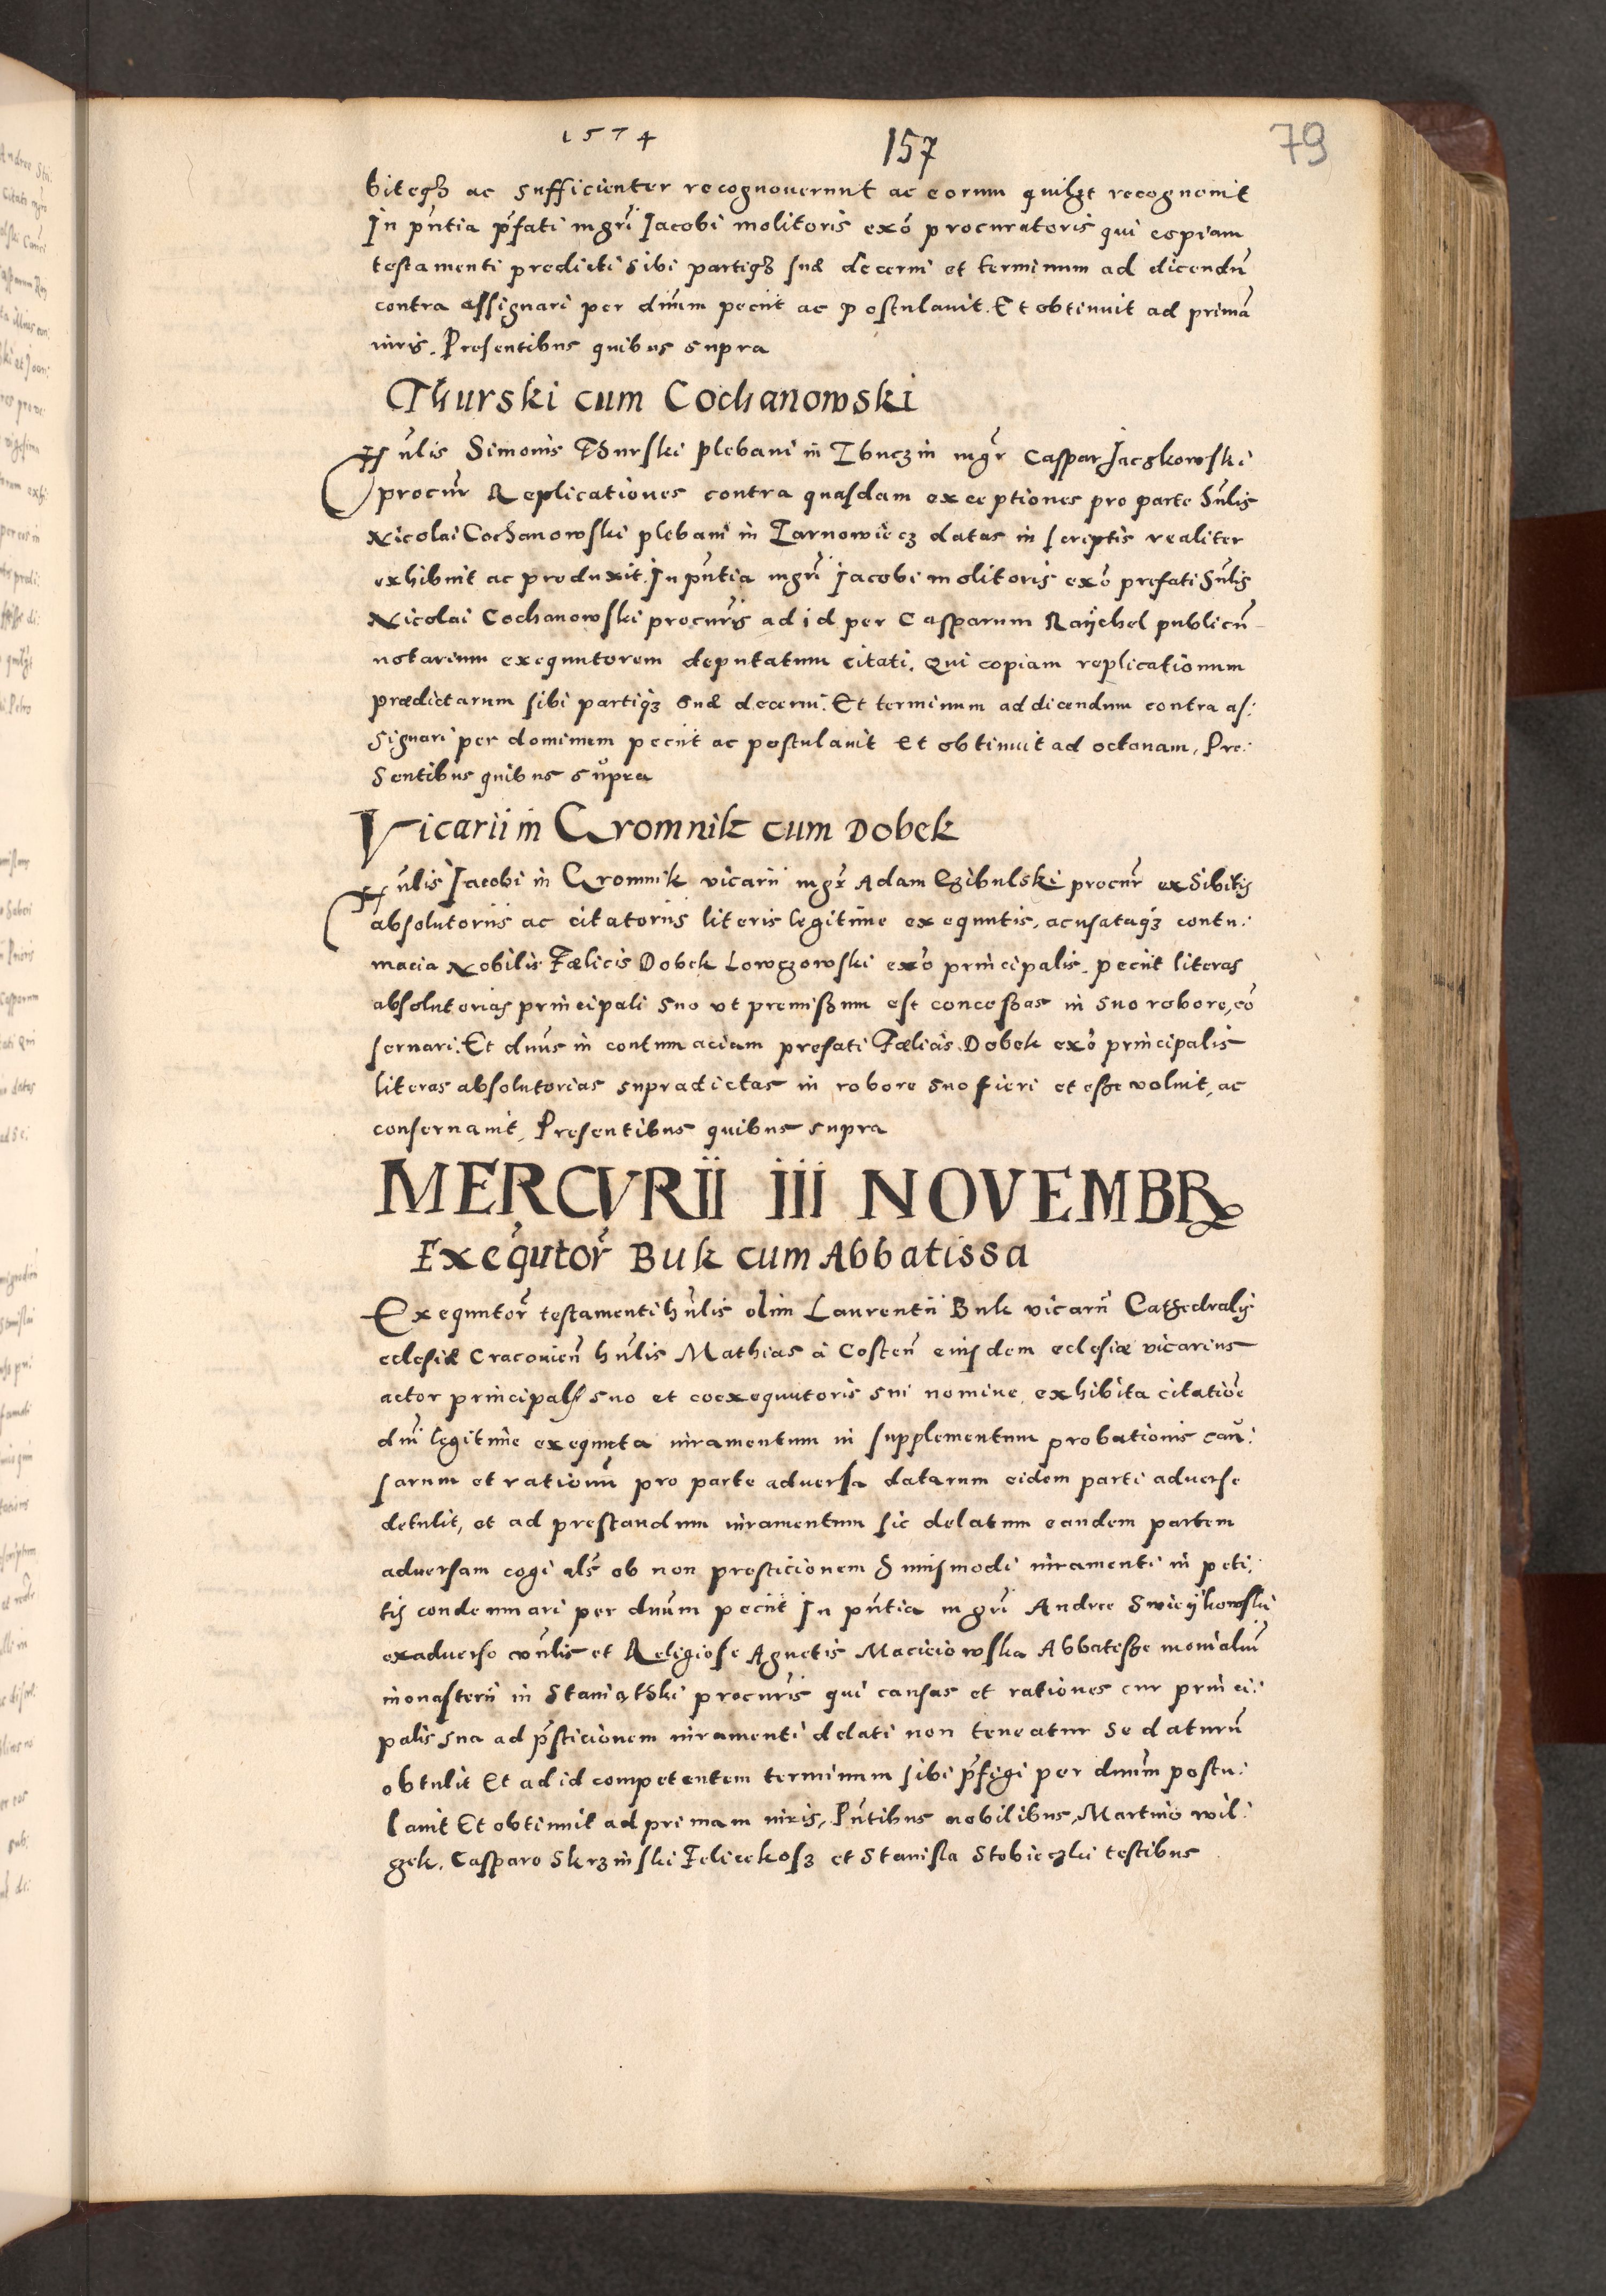 1574
157
79
biteqȝ ac sufficienter recognouerunt ac eorum quilȝt recognouit
In pn̄tia p̄fati mgr̄i Jacobi molitoris exō procuratoris qui copiam
testamenti predicti sibi partiqȝ suæ decerni et terminum ad dicendū
contra assignari per dn̄um peciit ac postulauit. Et obtinuit ad primā
iuris. Presentibus quibus supra
Thurski cum Cochanowski
Hn̄lis Simonis Thurski plebani in Zbuczin mgr̄ Caspar Jaczkowski
procur̄ Replicationes contra quasdam exceptiones pro parte hn̄lis
Nicolai Cochanowski plebani in Zarnowiecz datas in scriptis realiter
exhibuit ac produxit. In pn̄tia mgr̄i Jacobi molitoris exō prefati hn̄lis
Nicolai Cochanowski procur̄is ad id per Casparum Raÿchel publicū
notarium exequutorem deputatum citati. Qui copiam replicationum
prædictarum sibi partiqȝ suæ decerni. Et terminum ad dicendum contra as:
signari per dominum peciit ac postulauit et obtinuit ad octauam, Pre:
sentibus quibus supra
Vicarii in Gromnik cum Dobek
Hn̄lis Jacobi in Gromnik vicarii mgr̄ Adam Czibulski procur̄ exhibitis
absolutoriis ac citatoriis literis legitime exequutis, acusataqȝ contu:
macia Nobilis Fælicis Dobek Lowczowski exō principalis, peciit literas
absolutorias principali suo vt premissum est concessas in suo robore, cō
seruari. Et dn̄us in contumaciam prefati Fælicis Dobek exō principalis
literas absolutorias supradictas in robore suo fieri et esse voluit, ac
conseruauit, Presentibus quibus supra
MERCVRII III NOVEMBR
Exequtor̄ Buk cum Abbatissa
Exequutor̄ testamenti hn̄lis olim Laurentii Buk vicarii Cathedralis
eclesiæ Cracouien̄ hn̄lis Mathias a Costen̄ eiusdem eclesiæ vicarius
actor principalis suo et coexequutoris sui nomine exhibita citatiōe
dn̄i legitime exequuta iuramentum in supplementum probationis cau:
sarum et rationū pro parte aduersa datarum eidem parti aduerse
detulit, et ad prestandum iuramentum sic delatum eandem partem
aduersam cogi als̄ ob non presticionem huiusmodi iuramenti in peti:
tis condemnari per dn̄um peciit In pn̄tia mgr̄i Andree Swieÿkowski
exaduerso vn̄lis et Religiose Agnetis Macieiowska Abbatisse monialiū
monasterii in Staniątski procur̄is qui causas et rationes cur princi:
palis sua ad p̄sticionem iuramenti delati non teneatur se daturū
obtulit Et ad id competentem terminum sibi p̄figi per dn̄um postu:
lauit Et obtinuit ad primam iuris, Pn̄tibus nobilibus, Martino wil:
gek, Casparo Skrzinski Felice kosz et Stanisla Stobieczki testibus